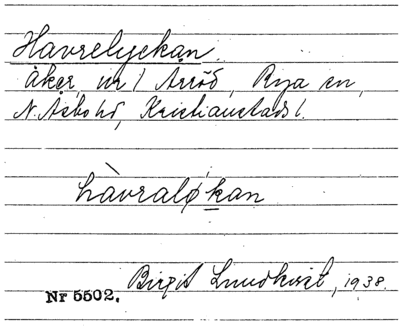 Havrelyckan.
åker, nr 1 Arröd, Rya sn,
N. Åsbo hd, Kristianstads l.
hàvralǿkan
Birgit Lundkvist, 1938.
Nr 5502.